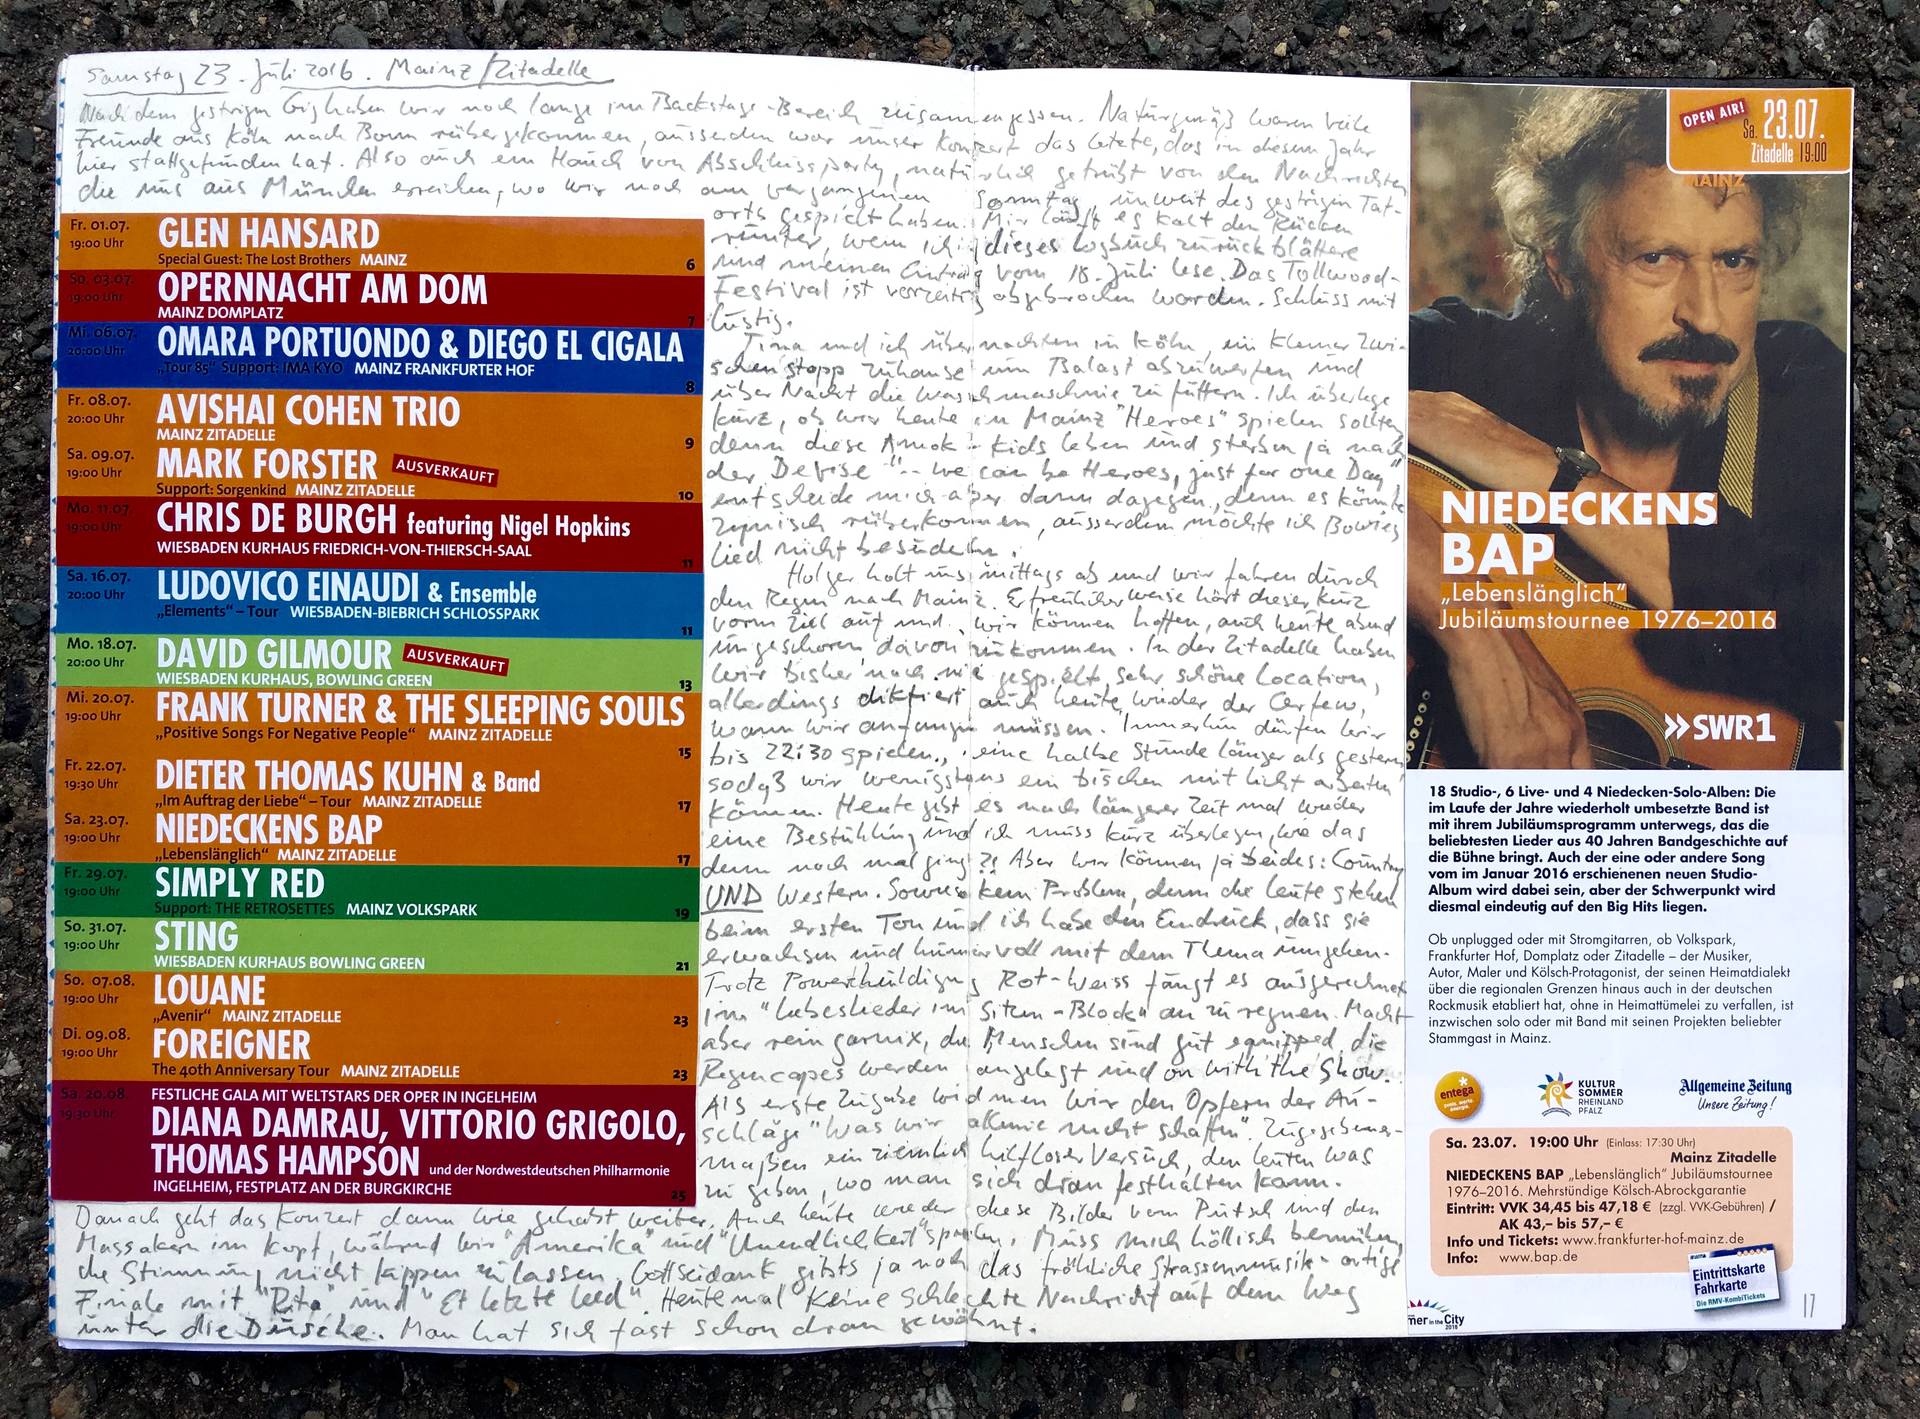 Samstag 23. Juli 2016. Mainz/Zitadelle
Nach dem gestrigen Gig haben wir noch lange im Backstage-Bereich zusammengesessen. Naturgemäß waren viele
Freunde aus Köln nach Bonn rübergekommen, ausserdem war unser Konzert das letzte, das in diesem Jahr
hier stattgefunden hat. Also auch ein Hauch von Abschlussparty, natürlich getrübt von den Nachrichten
die uns aus München erreichen, wo wir noch am vergangenen Sonntag, unweit des gestrigen Tat-
orts gespielt haben. Mir läuft es kalt den Rücken
runter, wenn ich dieses Logbuch zurückblättere
und meinen Eintrag vom 18. Juli lese. Das Tollwood-
Festival ist vorzeitig abgebrochen worden. Schluss mit
lustig.
Tina und ich übernachten in Köln, ein kleiner Zwi-
schenstopp zuhause um Balast abzuwerfen und
über Nacht die Waschmaschine zu füttern. Ich überlege
kurz, ob wir heute in Mainz "Heroes" spielen sollten,
denn diese Amok-Kids leben und sterben ja nach
der Devise "-- we can be Heroes, just for one Day"
entscheide mich aber dann dagegen, denn es könnte
zynisch rüberkommen, ausserdem möchte ich Bowies
Lied nicht besudeln.
Holger holt uns mittags ab und wir fahren durch
den Regen nach Mainz. Erfreulicherweise hört dieser kurz
vorm Ziel auf und wir können hoffen, auch heute abend
ungeschoren davon zu kommen. In der Zitadelle haben
wir bisher noch nie gespielt, sehr schöne Location,
allerdings diktiert auch heute wieder der Curfew,
wann wir anfangen müssen. Immerhin dürfen wir
bis 22:30 spielen, eine halbe Stunde länger als gestern
sodaß wir wenigstens ein bischen mit Licht arbeiten
können. Heute gibt es nach längerer Zeit mal wieder
eine Bestuhlung und ich muss kurz überlegen, wie das
denn noch mal ging?! Aber wir können ja beides: Country
UND Western. Sowieso kein Problem, denn die Leute stehen
beim ersten Ton und ich habe den Eindruck, dass sie
erwachsen und humorvoll mit dem Thema umgehen.
Trotz Powerhuldigung Rot-Weiss fängt es ausgerechnet
im "Liebeslieder im Sitzen-Block" an zu regnen. Macht
aber rein garnix, die Menschen sind gut equipped, die
Regencapes werden angelegt und on with the Show.
Als erste Zugabe widmen wir den Opfern der An-
schläge "Was wir alleine nicht schaffen". Zugegebener-
maßen ein ziemlich hilfloser Versuch, den Leuten was
zu geben, wo man sich dran festhalten kann.
Danach geht das Konzert dann wie gehabt weiter. Auch heute wieder diese Bilder vom Putsch und den
Massakern im Kopf, während wir "Amerika" und "Unendlichkeit" spielen. Muss mich höllisch bemühen,
die Stimmung nicht kippen zu lassen. Gottseidank gibts ja noch das fröhliche Strassenmusik-artige
Finale mit "Rita" und "Et letzte Leed". Heute mal keine schlechte Nachricht auf dem Weg
unter die Dusche. Man hat sich fast schon dran gewöhnt.
Fr. 01.07.
19:00 Uhr
GLEN HANSARD
Special Guest: The Lost Brothers MAINZ 6
So. 03.07.
19:00 Uhr
OPERNNACHT AM DOM
MAINZ DOMPLATZ 7
Mi. 06.07.
20:00 Uhr
OMARA PORTUONDO & DIEGO EL CIGALA
„Tour 85“ Support: IMA KYO MAINZ FRANKFURTER HOF 8
Fr. 08.07.
20:00 Uhr
AVISHAI COHEN TRIO
MAINZ ZITADELLE 9
Sa. 09.07.
19:00 Uhr
MARK FORSTER AUSVERKAUFT
Support: Sorgenkind MAINZ ZITADELLE 10
Mo. 11.07.
19:00 Uhr
CHRIS DE BURGH featuring Nigel Hopkins
WIESBADEN KURHAUS FRIEDRICH-VON-THIERSCH-SAAL 11
Sa. 16.07.
20:00 Uhr
LUDOVICO EINAUDI & Ensemble
„Elements“ – Tour WIESBADEN-BIEBRICH SCHLOSSPARK 11
Mo. 18.07.
20:00 Uhr
DAVID GILMOUR AUSVERKAUFT
WIESBADEN KURHAUS, BOWLING GREEN 13
Mi. 20.07.
19:00 Uhr
FRANK TURNER & THE SLEEPING SOULS
„Positive Songs For Negative People“ MAINZ ZITADELLE 15
Fr. 22.07.
19:30 Uhr
DIETER THOMAS KUHN & Band
„Im Auftrag der Liebe“ – Tour MAINZ ZITADELLE 17
Sa. 23.07.
19:00 Uhr
NIEDECKENS BAP
„Lebenslänglich“ MAINZ ZITADELLE 17
Fr. 29.07.
19:00 Uhr
SIMPLY RED
Support: THE RETROSETTES MAINZ VOLKSPARK 19
So. 31.07.
19:00 Uhr
STING
WIESBADEN KURHAUS BOWLING GREEN 21
So. 07.08.
19:00 Uhr
LOUANE
„Avenir“ MAINZ ZITADELLE 23
Di. 09.08.
19:00 Uhr
FOREIGNER
The 40th Anniversary Tour MAINZ ZITADELLE 23
Sa. 20.08.
19:30 Uhr
FESTLICHE GALA MIT WELTSTARS DER OPER IN INGELHEIM
DIANA DAMRAU, VITTORIO GRIGOLO,
THOMAS HAMPSON und der Nordwestdeutschen Philharmonie
INGELHEIM, FESTPLATZ AN DER BURGKIRCHE 25
OPEN AIR!
Sa. 23.07.
Zitadelle 19:00
MAINZ
NIEDECKENS
BAP
„Lebenslänglich“
Jubiläumstournee 1976–2016
SWR1
18 Studio-, 6 Live- und 4 Niedecken-Solo-Alben: Die
im Laufe der Jahre wiederholt umbesetzte Band ist
mit ihrem Jubiläumsprogramm unterwegs, das die
beliebtesten Lieder aus 40 Jahren Bandgeschichte auf
die Bühne bringt. Auch der eine oder andere Song
vom im Januar 2016 erschienenen neuen Studio-
Album wird dabei sein, aber der Schwerpunkt wird
diesmal eindeutig auf den Big Hits liegen.
Ob unplugged oder mit Stromgitarren, ob Volkspark,
Frankfurter Hof, Domplatz oder Zitadelle – der Musiker,
Autor, Maler und Kölsch-Protagonist, der seinen Heimatdialekt
über die regionalen Grenzen hinaus auch in der deutschen
Rockmusik etabliert hat, ohne in Heimattümelei zu verfallen, ist
inzwischen solo oder mit Band mit seinen Projekten beliebter
Stammgast in Mainz.
entega
KULTUR
SOMMER
RHEINLAND
PFALZ
Allgemeine Zeitung
Unsere Zeitung!
Sa. 23.07. 19:00 Uhr (Einlass: 17:30 Uhr)
Mainz Zitadelle
NIEDECKENS BAP „Lebenslänglich“ Jubiläumstournee
1976–2016. Mehrstündige Kölsch-Abrockgarantie
Eintritt: VVK 34,45 bis 47,18 € (zzgl. VVK-Gebühren) /
AK 43,– bis 57,– €
Info und Tickets: www.frankfurter-hof-mainz.de
Info: www.bap.de
Eintrittskarte
Fahrkarte
Die RMV-KombiTickets
mer in the City
2016
17